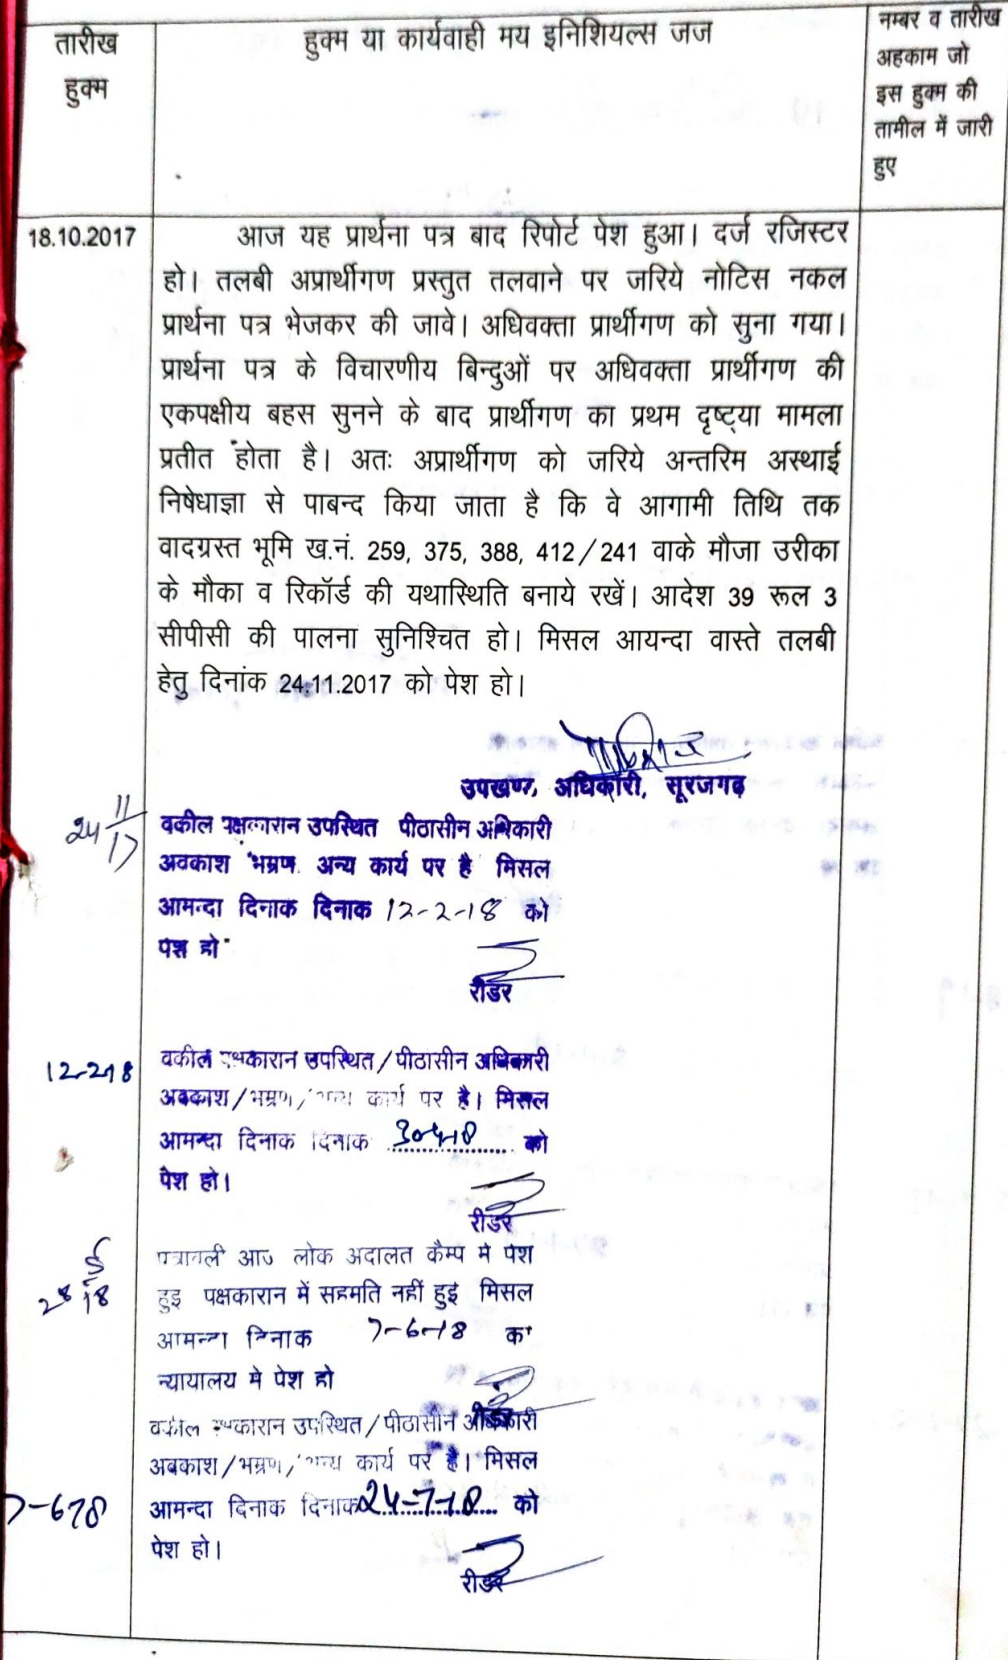 तारीख
हुक्म
हुक्म या कार्यवाही मय इनिशियल्स जज
नम्बर व तारीख
अहकाम जो
इस हुक्म की
तामील में जारी
हुए
18.10.2017
आज यह प्रार्थना पत्र बाद रिपोर्ट पेश हुआ। दर्ज रजिस्टर
हो। तलबी अप्रार्थीगण प्रस्तुत तलवाने पर जरिये नोटिस नकल
प्रार्थना पत्र भेजकर की जावे। अधिवक्ता प्रार्थीगण को सुना गया।
प्रार्थना पत्र के विचारणीय बिन्दुओं पर अधिवक्ता प्रार्थीगण की
एकपक्षीय बहस सुनने के बाद प्रार्थीगण का प्रथम दृष्ट्या मामला
प्रतीत होता है। अतः अप्रार्थीगण को जरिये अन्तरिम अस्थाई
निषेधाज्ञा से पाबन्द किया जाता है कि वे आगामी तिथि तक
वादग्रस्त भूमि ख.नं. 259, 375, 388, 412/241 वाके मौजा उरीका
के मौका व रिकॉर्ड की यथास्थिति बनाये रखें। आदेश 39 रूल 3
सीपीसी की पालना सुनिश्चित हो। मिसल आयन्दा वास्ते तलबी
हेतु दिनांक 24.11.2017 को पेश हो।
उपखण्ड अधिकारी, सूरजगढ़
24 11/17
वकील पक्षकारान उपस्थित पीठासीन अधिकारी
अवकाश भम्रण अन्य कार्य पर है मिसल
आमन्दा दिनाक दिनाक 12-2-18 को
पेश हो
रीडर
12-2-18
वकील पक्षकारान उपस्थित/पीठासीन अधिकारी
अवकाश/भम्रण/अन्य कार्य पर है। मिसल
आमन्दा दिनाक दिनाक 30-4-18 को
पेश हो।
रीडर
28 5/18
पत्रावली आज लोक अदालत कैम्प मे पेश
हुइ पक्षकारान में सहमति नहीं हुई मिसल
आमन्दा दिनाक 7-6-18 को
न्यायालय मे पेश हो
रीडर
7-6-18
वकील पक्षकारान उपस्थित/पीठासीन अधिकारी
अवकाश/भम्रण/अन्य कार्य पर है। मिसल
आमन्दा दिनाक दिनाक 24-7-18 को
पेश हो।
रीडर